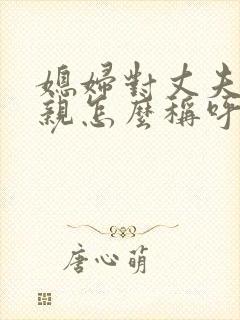 媳婦對丈夫
親怎麼稱呼
唐心萌